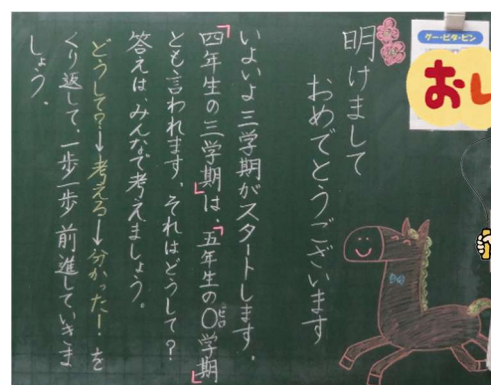 明けまして
おめでとうございます
いよいよ三学期がスタートします。
「四年生の三学期」は、「五年生の〇学期」
とも言われます。それはどうして？
答えは、みんなで考えましょう。
どうして？→考える→分かった！を
くり返して、一歩一歩前進していきま
しょう。
グー・ピタ・ピン
おし